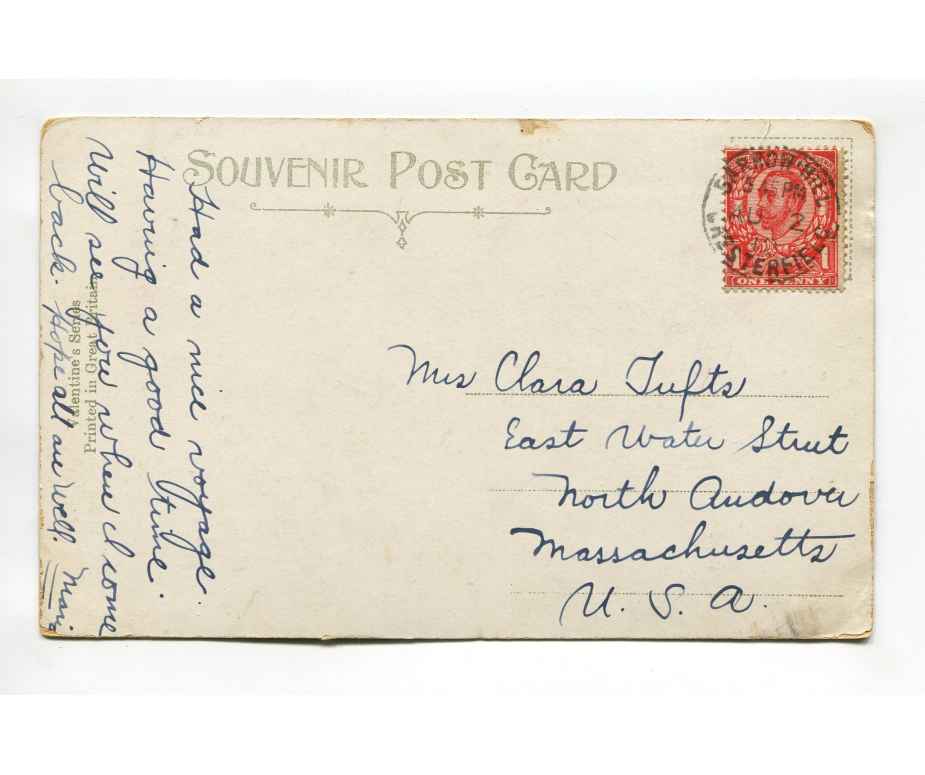 SOUVENIR POST CARD
Had a nice voyage.
Having a good time.
Will see you when I come
back. Hope all are well.
Valentine's Series
Printed in Great Britain
BARROW HILL
PM
AU 2
CHESTERFIELD
1 1
ONE PENNY
Mrs Clara Tufts
East Water Street
North Andover
Massachusetts
U. S. A.